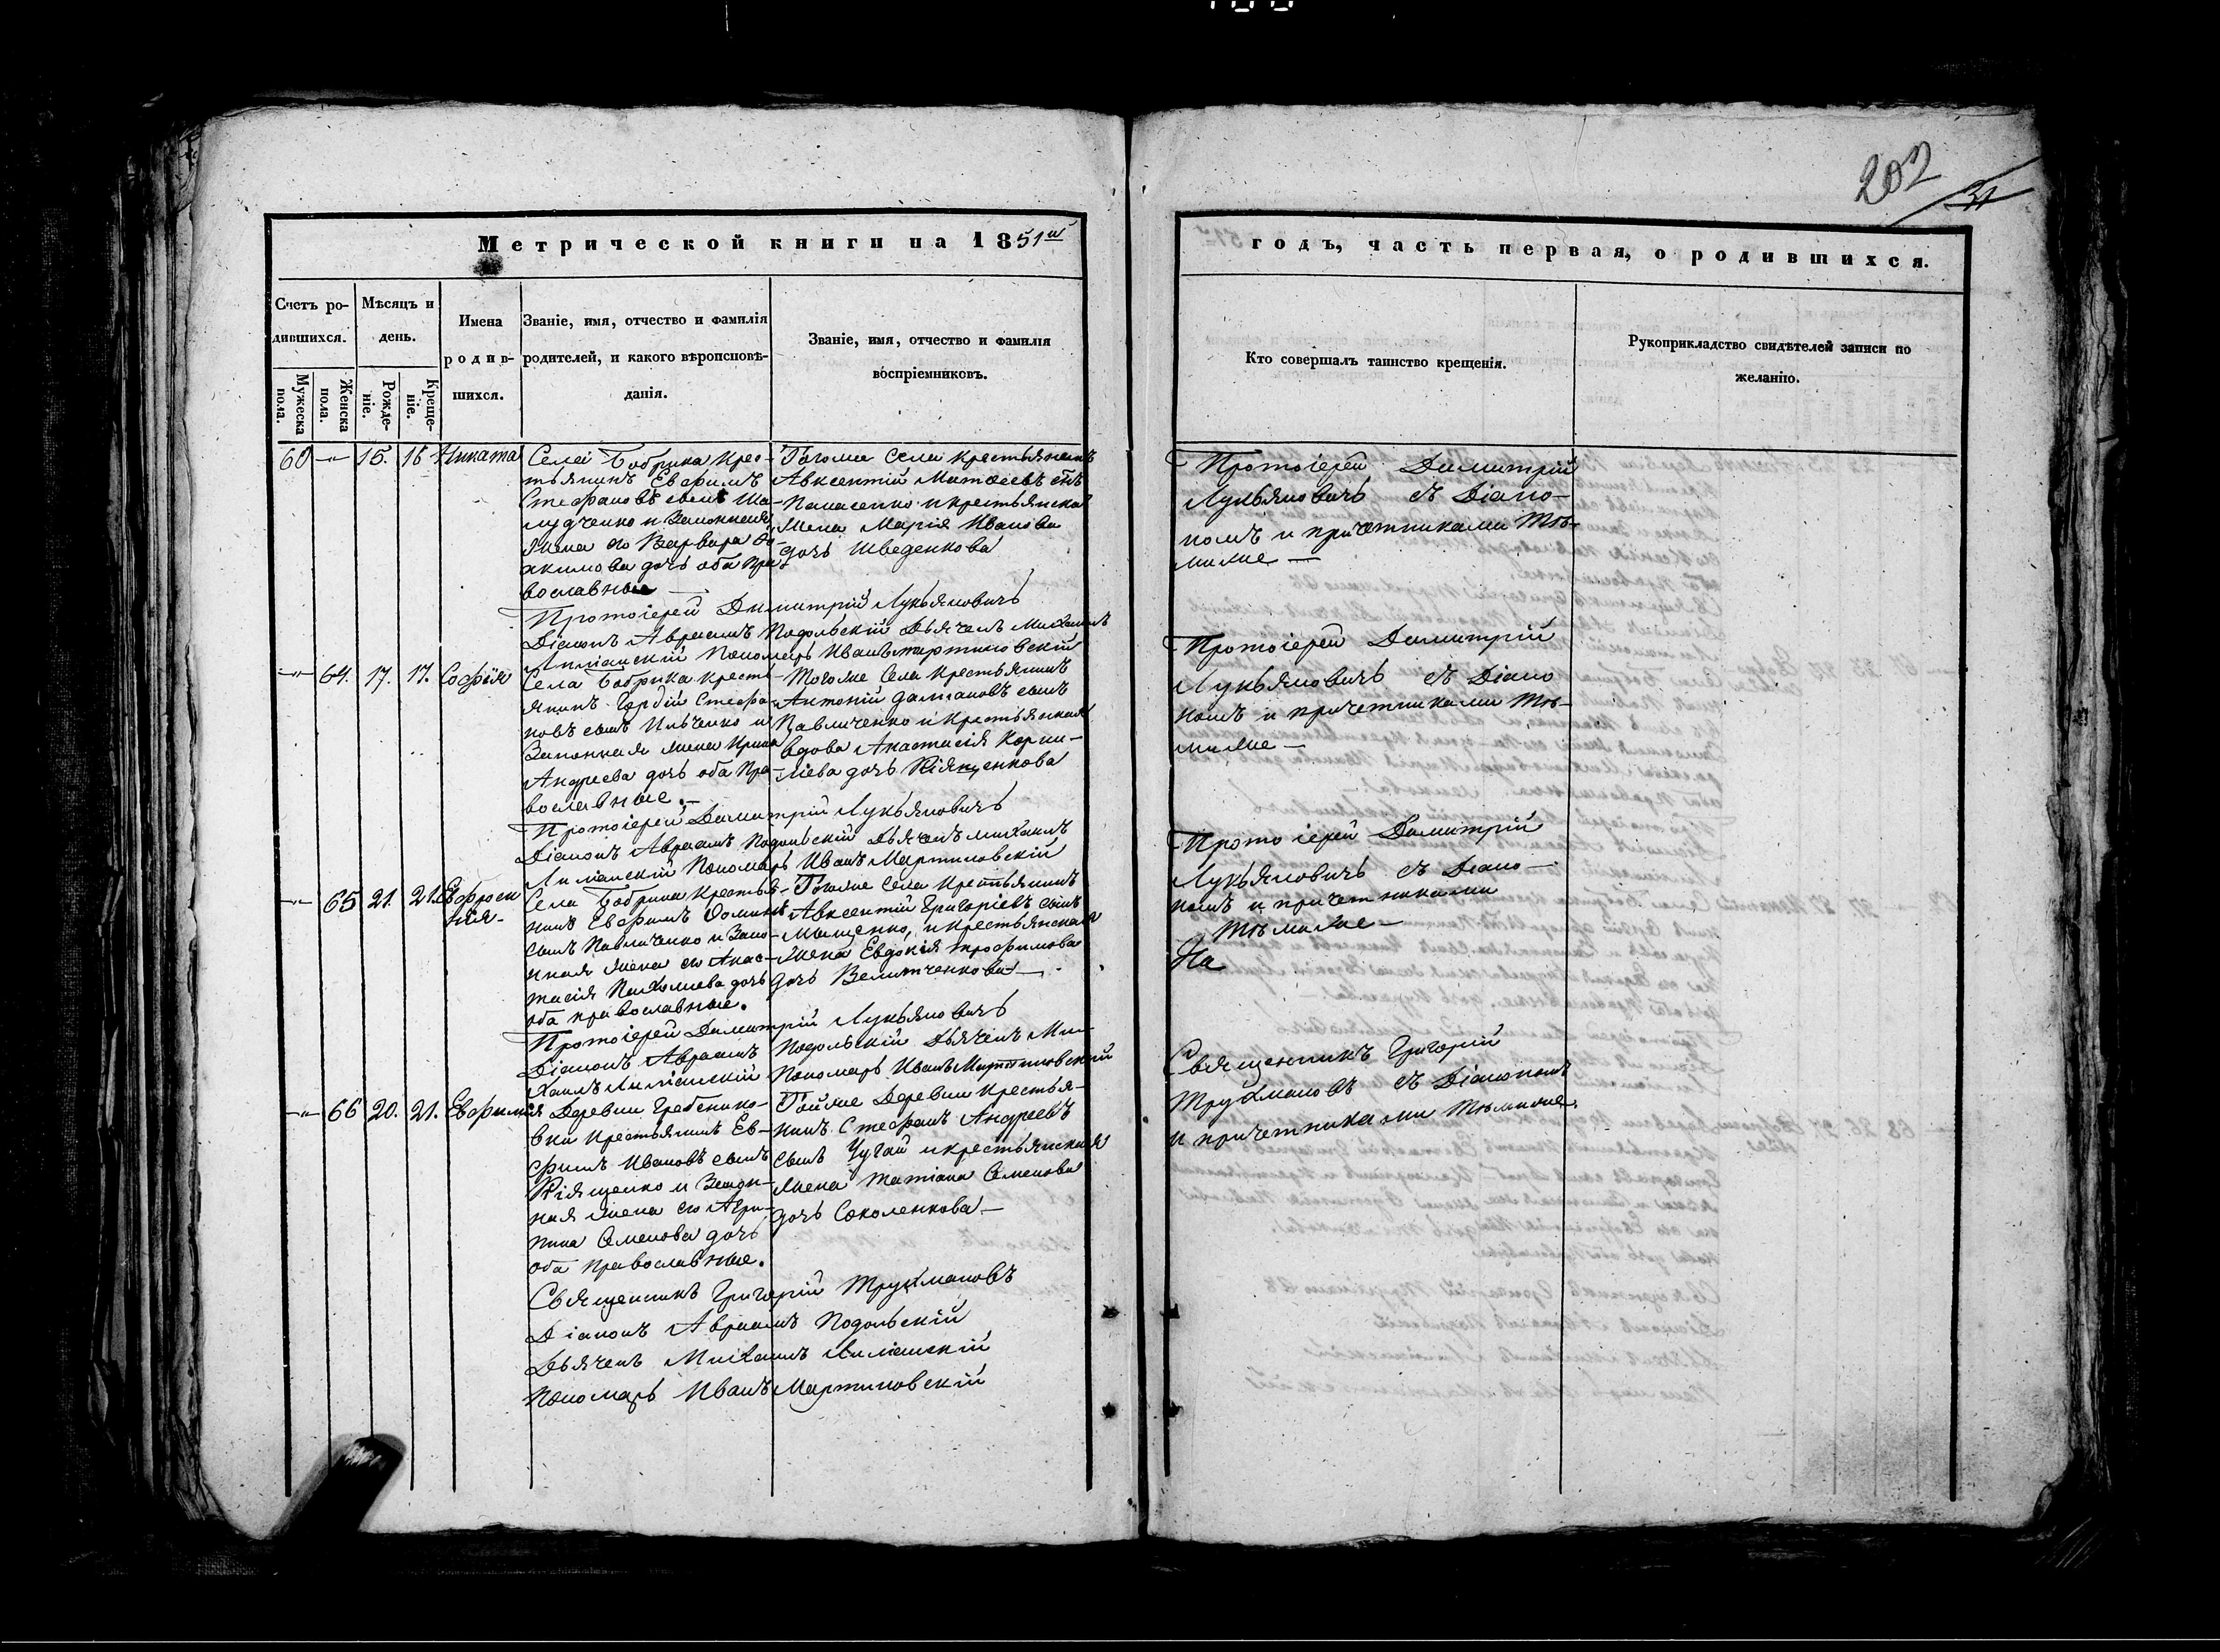 202
31
Метрической книги на 1851й
годъ, часть первая, о родившихся.
Счетъ ро-
дившихся.
Мужеска
пола.
Женска
пола.
Мѣсяцъ и
день.
Рожде-
ніе.
Креще-
ніе.
Имена
родив-
шихся.
Званіе, имя, отчество и фамилія
родителей, и какого вѣроисповѣ-
данія.
Званіе, имя, отчество и фамилія
воспріемниковъ.
Кто совершалъ таинство крещенія.
Рукоприкладство свидѣтелей записи по
желанію.
60 —"— 15. 16 Никита
Села Бобрика Крес-
тьянинъ Евфимъ
Стефановъ сынъ Ша-
лудченко и Законная
Жена его Варвара
акимова дочь оба Пра-
вославные —
Тогоже Села Крестьянинъ
Авксентій Матѳеевъ снъ
Панасенко и крестьянска
Жена Марія Иванова
дочь Шведенкова
Протоіерей Димитрій
Лукьяновичъ съ Діако-
номъ и причетниками Тѣ-
миже —
Протоіерей Димитрій Лукьяновичъ
Діаконъ Авраамъ Подольскій Дьячекъ Михаилъ
Пономарь Иванъ Мартиновскій
—"— 64. 17. 17. Софія
Села Бобрика Крест-
янинъ Гордій Стефа-
новъ сынъ Ильченко и
Законная жена Ирина
Андреева дочь оба Пра-
вославные.—
Тогоже Села Крестьянинъ
Антоній Далмановъ сынъ
Павличенко и Крестьянская
вдова Анастасія Корни-
ліева дочь Кіященкова
Протоіерей Димитрій
Лукьяновичъ съ Діако
номъ и причетниками Тѣ-
миже —
Протоіерей Димитрій Лукьяновичъ
Діаконъ Авраамъ Подольскій Дьячекъ Михаилъ
Пономарь Иванъ Мартиновскій
—"— 65 21. 21. Евфроси
нія-
Села Бобрика Крестья-
нинъ Евфимъ Фоминъ
сынъ Павличенко и Зако-
нная жена его Анас-
тасія Пахоміева дочь
оба православные.
Тогоже Села Крестьянинъ
Авксентій Григоріевъ сынъ
Мищенко, и Крестьянская
Жена Евдокія Трофимова
дочь Величенкова —
Протоіерей Димитрій
Лукьяновичъ съ Діако-
номъ и причетниками
Тѣмиже —
На
Протоіерей Димитрій Лукьяновичъ
Діаконъ Авраамъ Подольскій Дьячекъ Ми-
хаилъ Пономарь Иванъ Мартиновскій
—"— 66 20. 21. Евфимія
Деревни Гребенико-
вки Крестьянинъ Ев-
фимъ Ивановъ сынъ
Кіященко и Закон-
ная жена его Агри-
пина Семенова дочь
оба Православные.
Тойже Деревни Крестья-
нинъ Стефанъ Андреевъ
сынъ Чугай и крестьянская
Жена Татіана Семенова
дочь Соколенкова —
Священникъ Григорій
Трухмановъ съ Діакономъ
и причетниками Тѣмиже.
Священникъ Григорій Трухмановъ
Діаконъ Авраамъ Подольскій
Дьячекъ Михаилъ
Пономарь Иванъ Мартиновскій